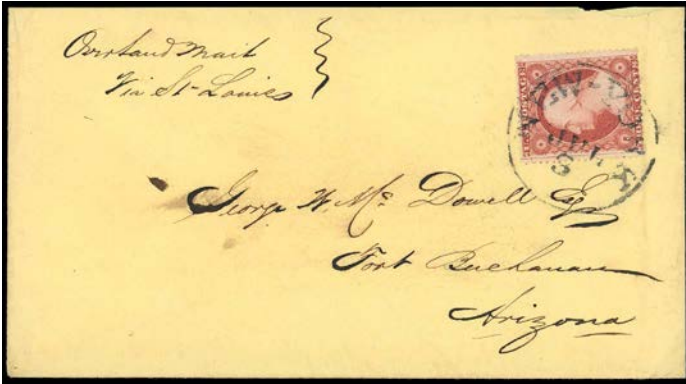 Overland Mail
Via St. Louis
NEW-YORK
JUL
8
George W. Mc Dowell Esq
Fort Buchanan
Arizona